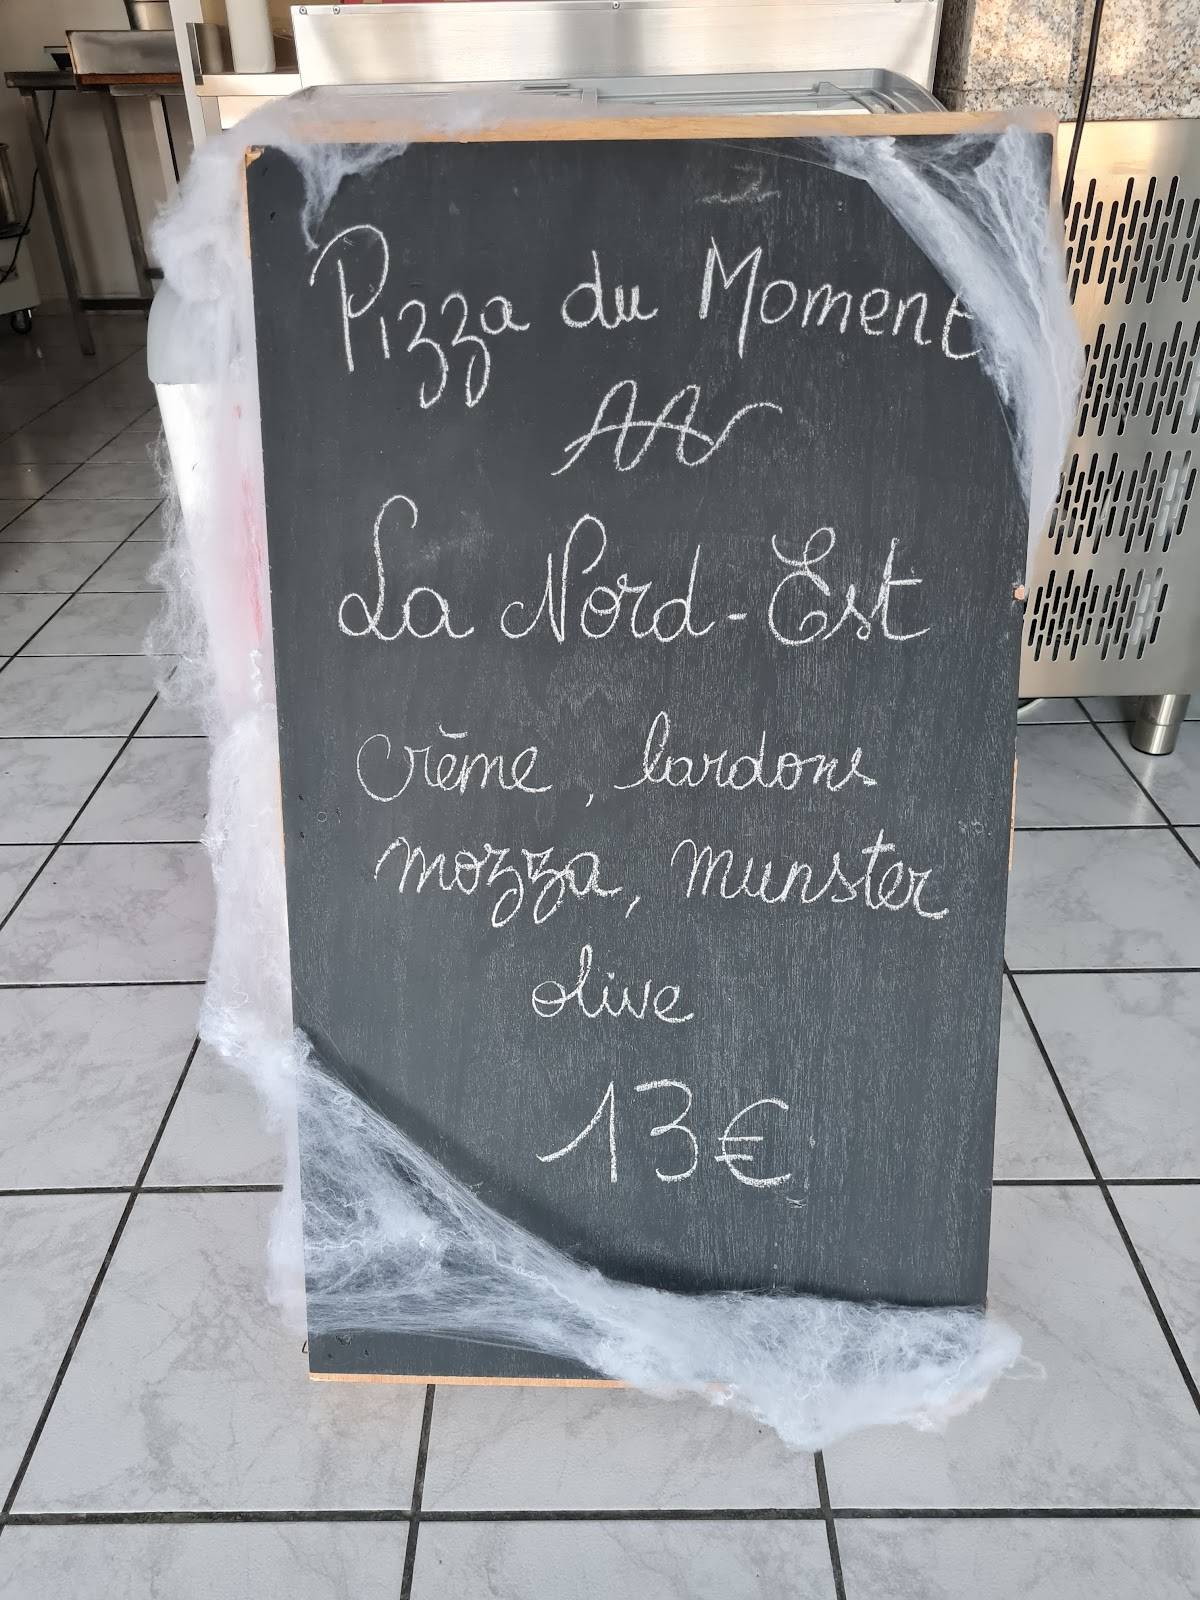 Pizza du Moment
La Nord-Est
crème, lardons
mozza, munster
olive
13€